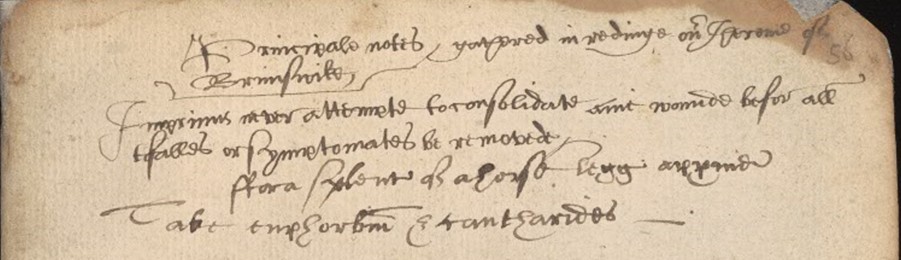 Principale notes, gathered in redinge on Iherome of
Brunswike,
Imprimis never attempte to consolidate anie wounde befor all
or symptomates be removed,
ffor a splente of a horse legg
Take euphorbiu & cantharides
56